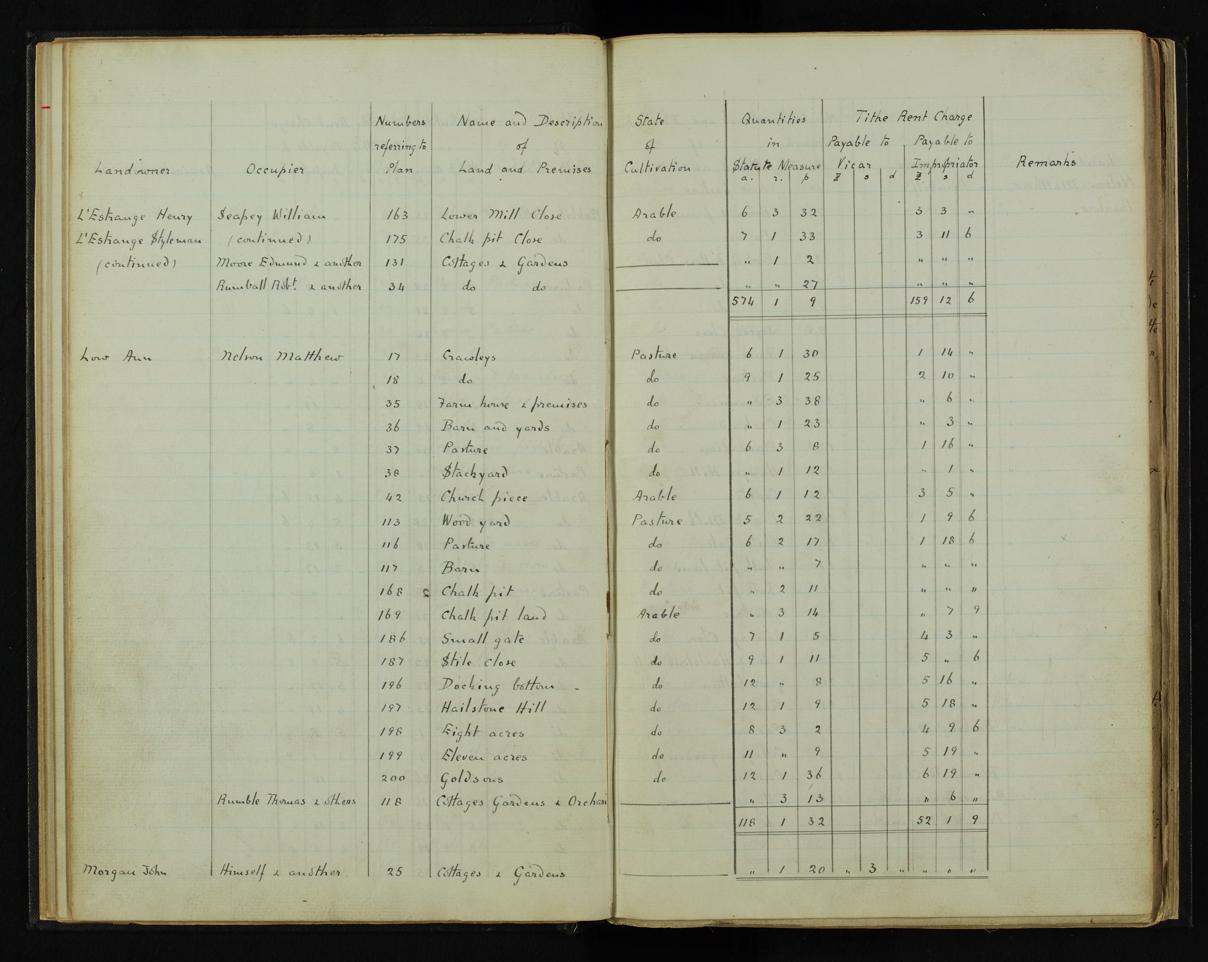 Numbers Name and Description State Quantities Tithe Rent Charge
referring to of of in Payable to Payable to
Landowner Occupier Plan Land and Premises Cultivation Statute Measure Vicar Impropriator Remarks
a. r. p £ s d £ s d
L'Estrange Henry Seapey William 163 Lower Mill Close Arable 6 3 32 3 3 "
L'Estrange Styleman (continued) 175 Chalk pit Close do 7 1 33 3 11 6
(continued) Moore Edmund & another 131 Cottages & Gardens " 1 2 " " "
Rumball Robt. & another 34 do do " " 27 " " "
574 1 9 159 12 6
Low Ann Nelson Matthew 17 Crawleys Pasture 6 1 30 1 14 "
18 do do 9 1 25 2 10 "
35 Farm house & premises do " 3 38 " 6 "
36 Barn and yards do " 1 23 " 3 "
37 Pasture do 6 3 8 1 16 "
38 Stackyard do " 1 12 " 1 "
42 Church piece Arable 6 1 12 3 5 "
113 Wood yard Pasture 5 2 22 1 9 6
116 Pasture do 6 2 17 1 18 6
117 Barn do " " 7 " " "
168 Chalk pit do " 2 11 " " "
169 Chalk pit land Arable " 3 14 " 7 9
186 Small gate do 7 1 5 4 3 "
187 Stile close do 9 1 11 5 " 6
196 Docking bottom do 12 " 8 5 16 "
197 Hailstone Hill do 12 1 9 5 18 "
198 Eight acres do 8 3 2 4 9 6
199 Eleven acres do 11 " 9 5 19 "
200 Goldsons do 12 1 36 6 19 "
Rumble Thomas & others 118 Cottages Gardens & Orchard " 3 13 " 6 "
118 1 32 52 1 9
Morgan John Himself & another 25 Cottages & Gardens " 1 20 " 3 " " " "